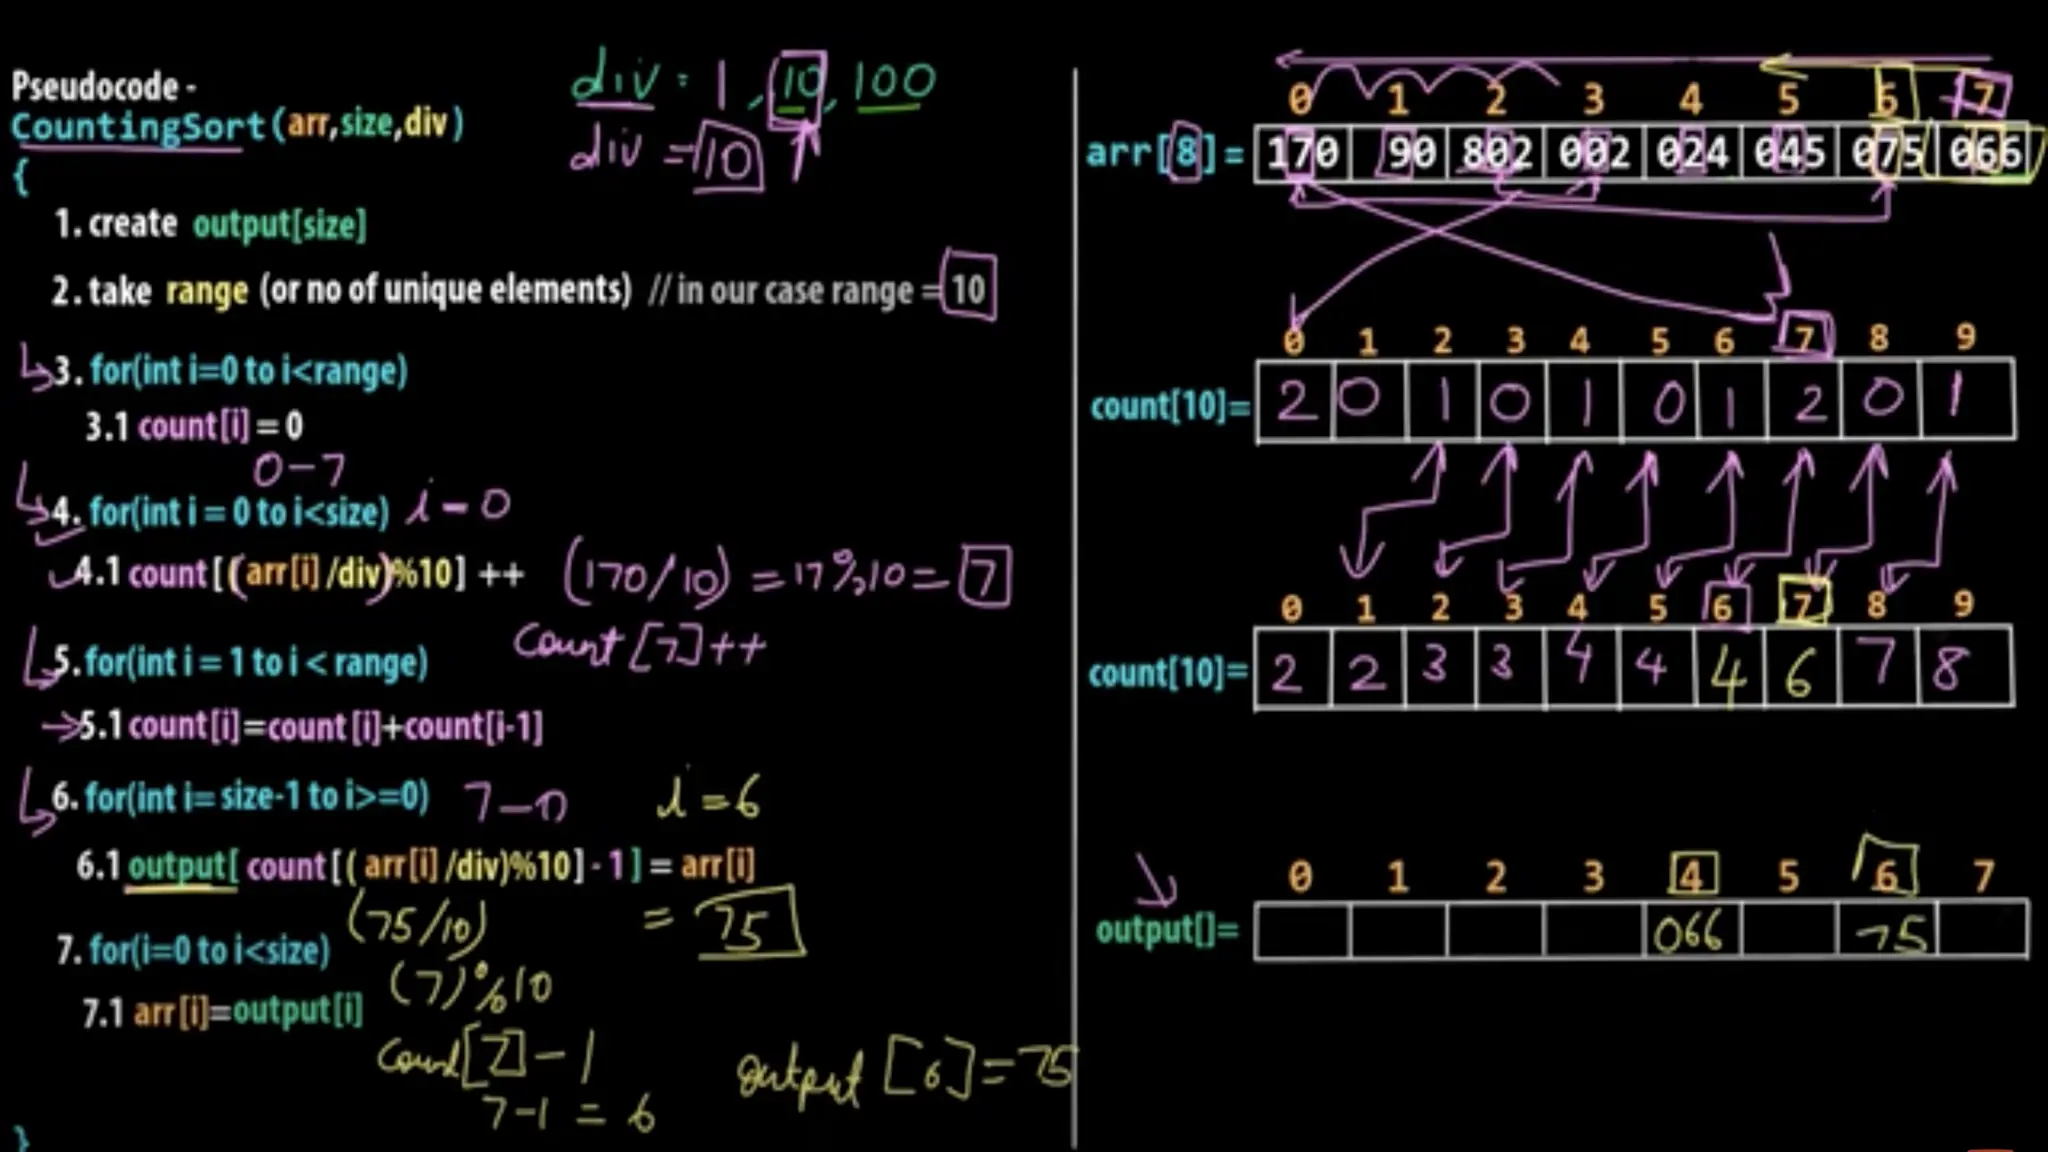 Pseudocode -
CountingSort(arr,size,div)
{
div : 1 , 10, 100
div = 10
1. create output[size]
2. take range (or no of unique elements) // in our case range = 10
3. for(int i=0 to i<range)
3.1 count[i] = 0
0-7
4. for(int i = 0 to i<size) i - 0
4.1 count[(arr[i]/div)%10] ++ (170/10) = 17%10 = 7
count[7]++
5. for(int i = 1 to i < range)
5.1 count[i]=count [i]+count[i-1]
6. for(int i= size-1 to i>=0) 7-0 i = 6
6.1 output[ count[( arr[i] /div)%10] - 1 ] = arr[i]
(75/10) = 75
7. for(i=0 to i<size)
(7)%10
7.1 arr[i]=output[i]
count[7]-1
7-1 = 6
output [6]=75
}
0 1 2 3 4 5 6 7
arr[8] = 170 90 802 002 024 045 075 066
0 1 2 3 4 5 6 7 8 9
count[10]= 2 0 1 0 1 0 1 2 0 1
0 1 2 3 4 5 6 7 8 9
count[10]= 2 2 3 3 4 4 4 6 7 8
0 1 2 3 4 5 6 7
output[]= 066 75